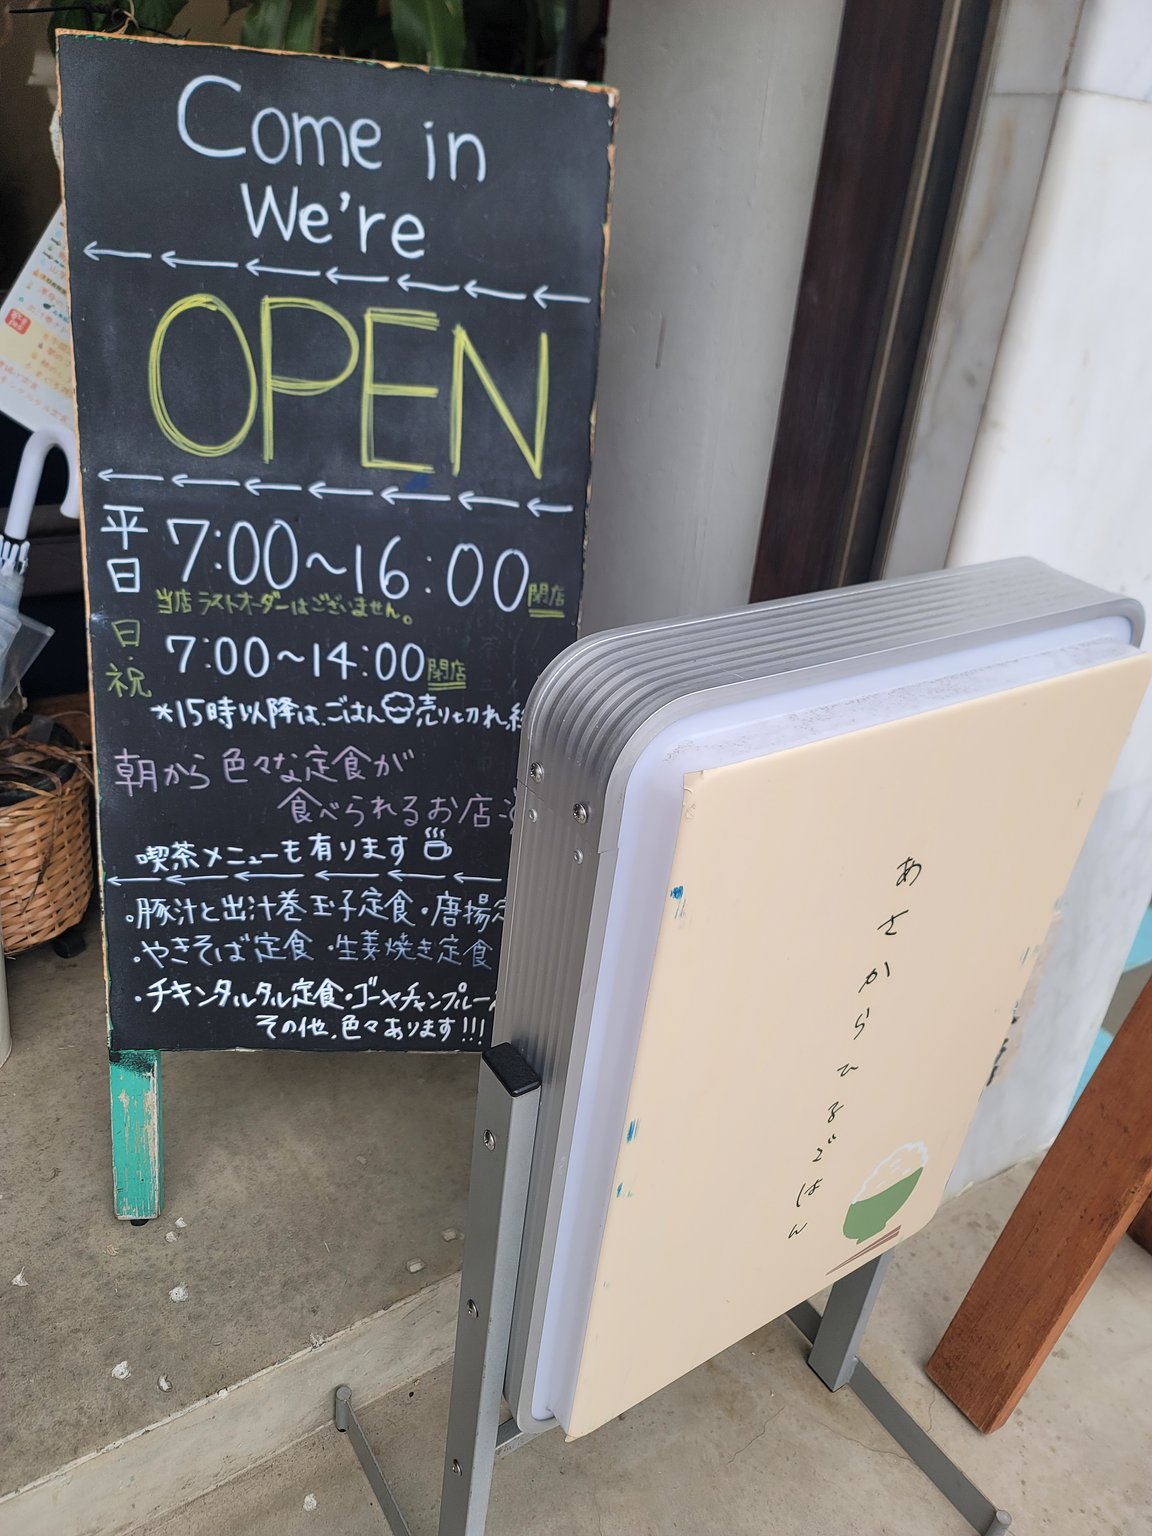 Come in
We're
OPEN
平日 7:00~16:00 閉店
当店ラストオーダーはございません。
日・祝 7:00~14:00 閉店
*15時以降は、ごはん売り切れ
朝から色々な定食が
食べられるお店
喫茶メニューも有ります
・豚汁と出汁巻玉子定食・唐揚
・やきそば定食・生姜焼き定食
・チキンタルタル定食・ゴーヤチャンプルー
その他、色々あります!!!
あさからひるごはん